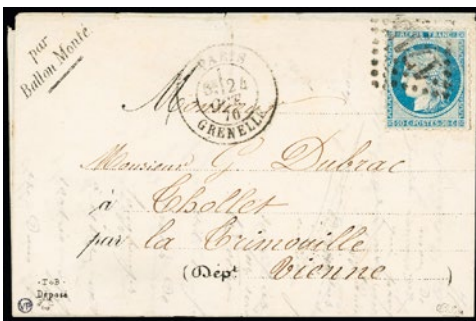 par
Ballon Monté
PARIS
24
70
GRENELLE
REPUB. FRANC.
20 C. POSTES 20 C.
Monsieur G. Dubrac
à Thollet
par la Trimouille
(Dépt Vienne)
T.B
Déposé